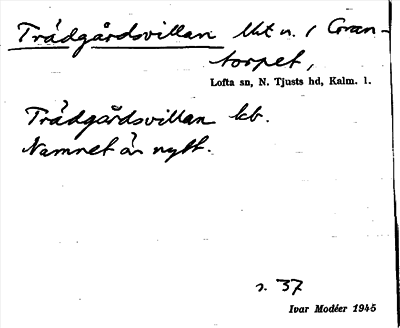 Trädgårdsvillan lht n. / Gran-
torpet,
Lofta sn, N. Tjusts hd, Kalm. l.
Trädgårdsvillan kb.
Namnet är nytt.
s. 37
Ivar Modéer 1945